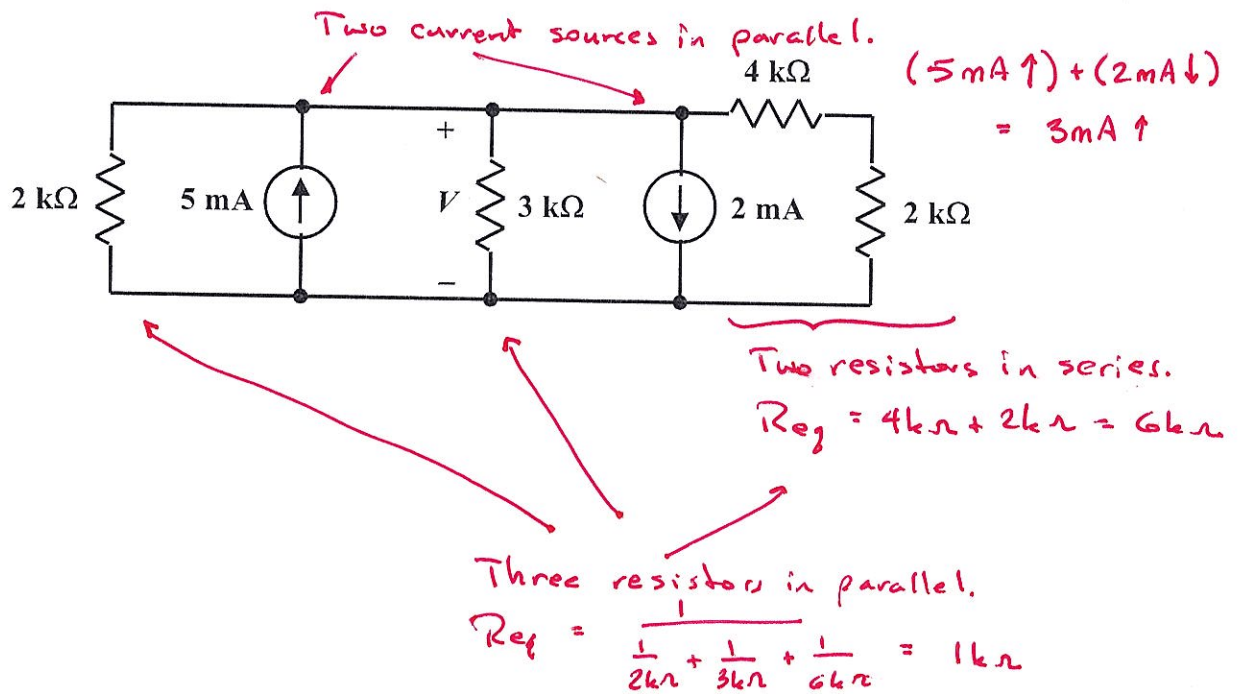 Two current sources in parallel.
4 kΩ
(5mA↑)+(2mA↓)
= 3mA↑
+
2 kΩ
5 mA
V
3 kΩ
2 mA
2 kΩ
−
Two resistors in series.
Req = 4kΩ + 2kΩ = 6kΩ
Three resistors in parallel.
Req = 1 / (1/2kΩ + 1/3kΩ + 1/6kΩ) = 1kΩ